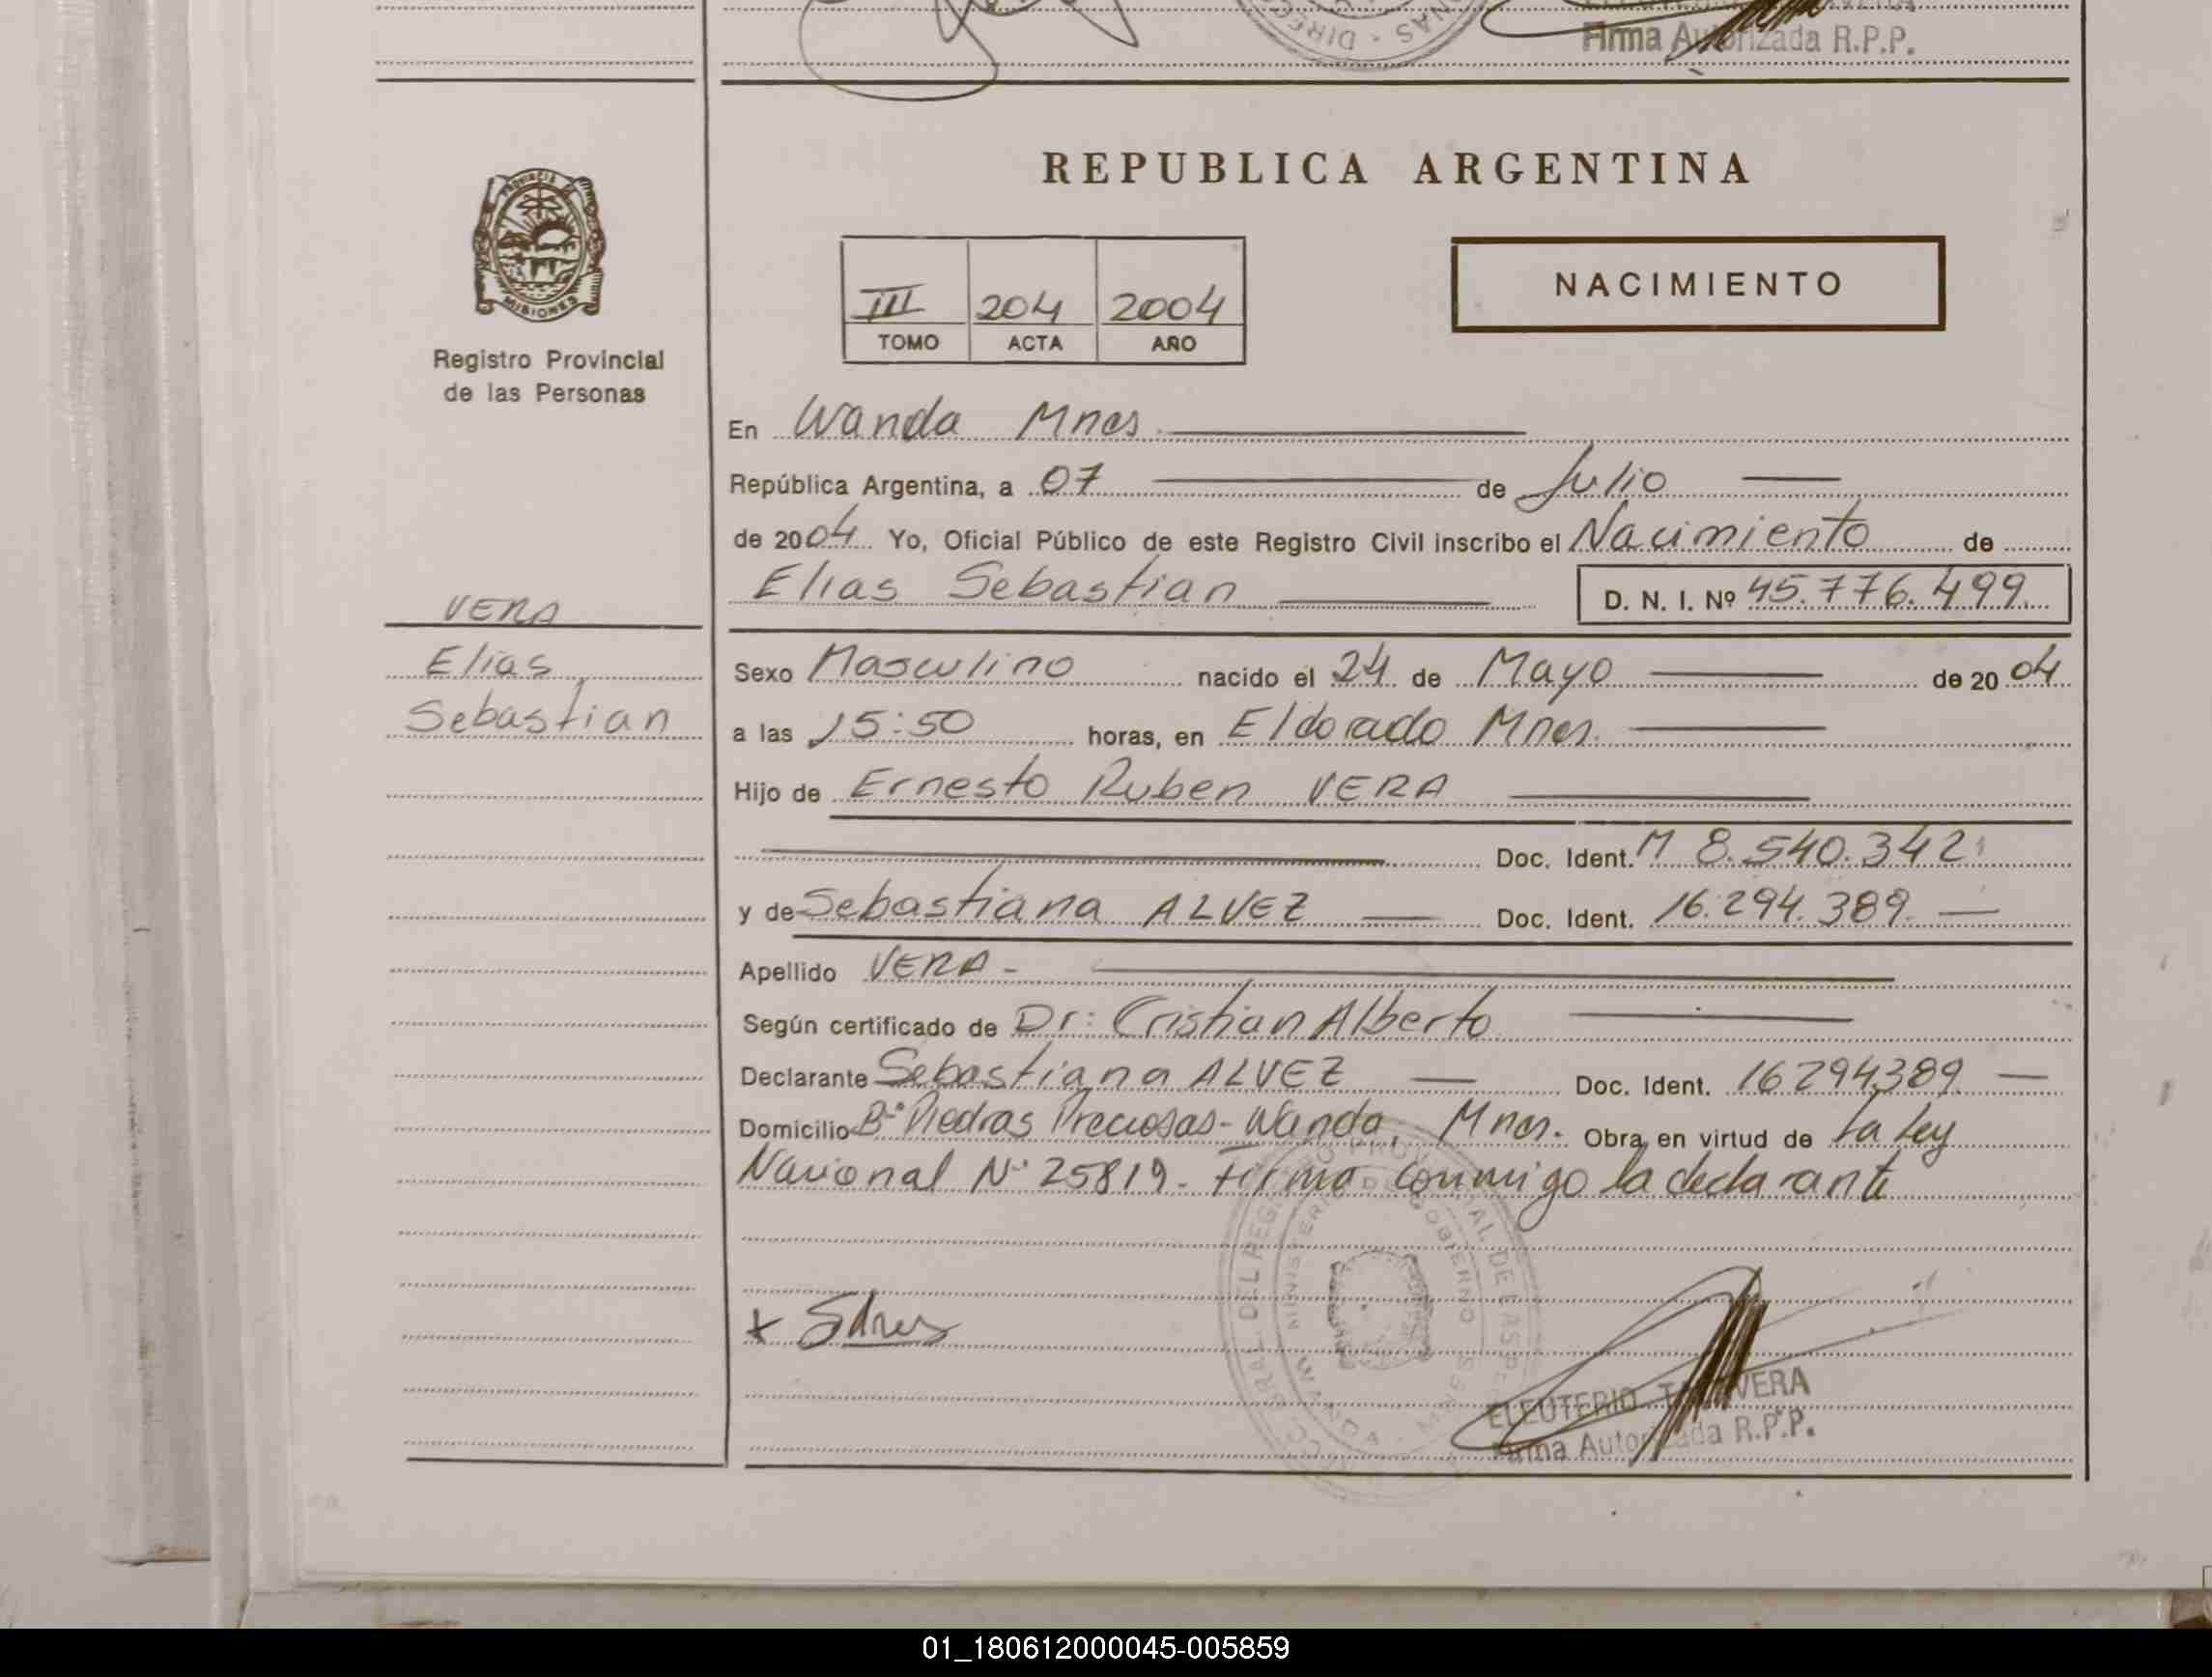 Firma Autorizada R.P.P.
REPUBLICA ARGENTINA
PROVINCIA DE
MISIONES
Registro Provincial
de las Personas
NACIMIENTO
III 204 2004
TOMO ACTA AÑO
En Wanda Mnes.
República Argentina, a 07 de Julio
de 2004 Yo, Oficial Público de este Registro Civil inscribo el Nacimiento de
Elias Sebastian D. N. I. Nº 45.776.499.
VERA
Elias
Sebastian
Sexo Masculino nacido el 24 de Mayo de 2004
a las 15:50 horas, en Eldorado Mnes.
Hijo de Ernesto Ruben VERA
Doc. Ident. M 8.540.342
y de Sebastiana ALVEZ Doc. Ident. 16.294.389.
Apellido VERA-
Según certificado de Dr: Cristian Alberto
Declarante Sebastiana ALVEZ Doc. Ident. 16294389
Domicilio Bº Piedras Preciosas-Wanda, Mnes. Obra en virtud de la Ley
Nacional Nº 25819. Firma conmigo la declarante
MINISTERIO DE GOBIERNO
WANDA - MNES
ELEUTERIO
Firma Autorizada R.P.P.
01_180612000045-005859